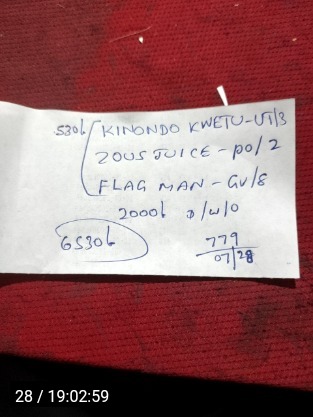 530b KINONDO KWETU-UT/3
ZOUS JUICE - PO/2
FLAG MAN - GV/8
2000b D/W/O
6530b
779
07/28
28 / 19:02:59